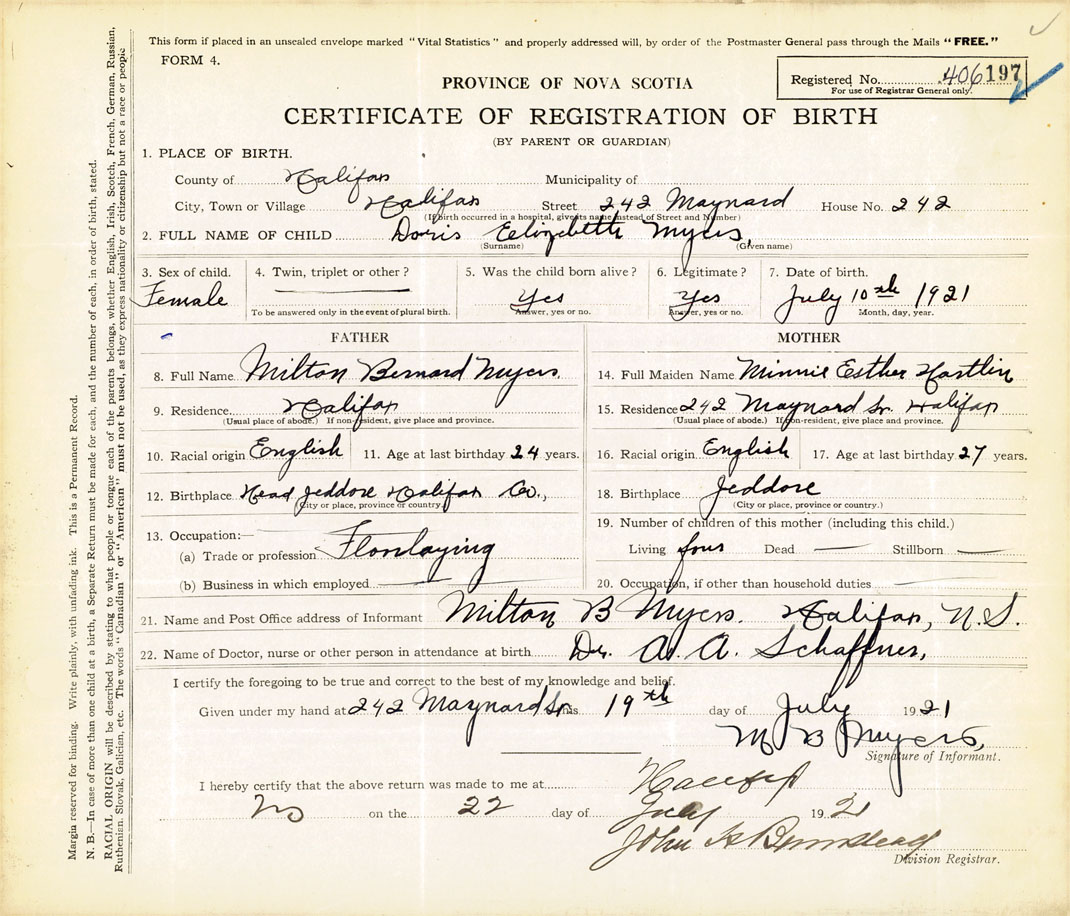 This form if placed in an unsealed envelope marked "Vital Statistics" and properly addressed will, by order of the Postmaster General pass through the Mails "FREE."
FORM 4.
Registered No. 406197
For use of Registrar General only.
PROVINCE OF NOVA SCOTIA
CERTIFICATE OF REGISTRATION OF BIRTH
(BY PARENT OR GUARDIAN)
1. PLACE OF BIRTH.
County of Halifax Municipality of
City, Town or Village Halifax Street 242 Maynard House No. 242
(If birth occurred in a hospital, give its name instead of Street and Number)
2. FULL NAME OF CHILD Doris Elizabeth Myers,
(Surname) (Given name)
3. Sex of child. 4. Twin, triplet or other? 5. Was the child born alive? 6. Legitimate? 7. Date of birth.
Female Yes Yes July 10th 1921
To be answered only in the event of plural birth. Answer, yes or no. Answer, yes or no. Month, day, year.
FATHER
8. Full Name Milton Bernard Myers
9. Residence Halifax
(Usual place of abode.) If non-resident, give place and province.
10. Racial origin English 11. Age at last birthday 24 years.
12. Birthplace Head Jeddore Halifax Co.,
(City or place, province or country.)
13. Occupation:—
(a) Trade or profession Floorlaying
(b) Business in which employed
MOTHER
14. Full Maiden Name Minnie Esther Hartlin
15. Residence 242 Maynard St. Halifax
(Usual place of abode.) If non-resident, give place and province.
16. Racial origin English 17. Age at last birthday 27 years.
18. Birthplace Jeddore
(City or place, province or country.)
19. Number of children of this mother (including this child.)
Living four Dead — Stillborn —
20. Occupation, if other than household duties —
21. Name and Post Office address of Informant Milton B Myers. Halifax, N.S.
22. Name of Doctor, nurse or other person in attendance at birth Dr. A. A. Schaffner,
I certify the foregoing to be true and correct to the best of my knowledge and belief.
Given under my hand at 242 Maynard St. this 19th day of July 1921
M B Myers,
Signature of Informant.
I hereby certify that the above return was made to me at Halifax
NS on the 22 day of July 1921
John H
Division Registrar.
Margin reserved for binding. Write plainly, with unfading ink. This is a Permanent Record.
N. B.—In case of more than one child at a birth, a Separate Return must be made for each, and the number of each, in order of birth, stated.
RACIAL ORIGIN will be described by stating to what people or tongue each of the parents belongs, whether English, Irish, Scotch, French, German, Russian,
Ruthenian, Slovak, Galician, etc. The words "Canadian" or "American" must not be used, as they express nationality or citizenship but not a race or people